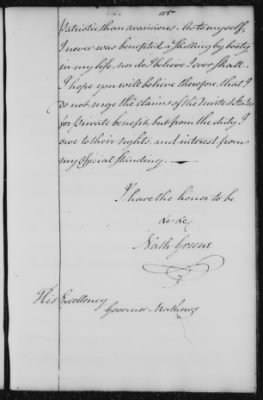 115
Patriotic than avaricious. As to myself,
I never was benefited a shilling by booty
in my life, nor do I believe I ever shall.
I hope you will believe therefore that I
do not urge the claims of the United States
for private benefit, but from the duty I
owe to their rights, and interest from
my Official Standing. —
I have the honor to be
&c &c
Nath Greene
His Excellency
Governor Mathews